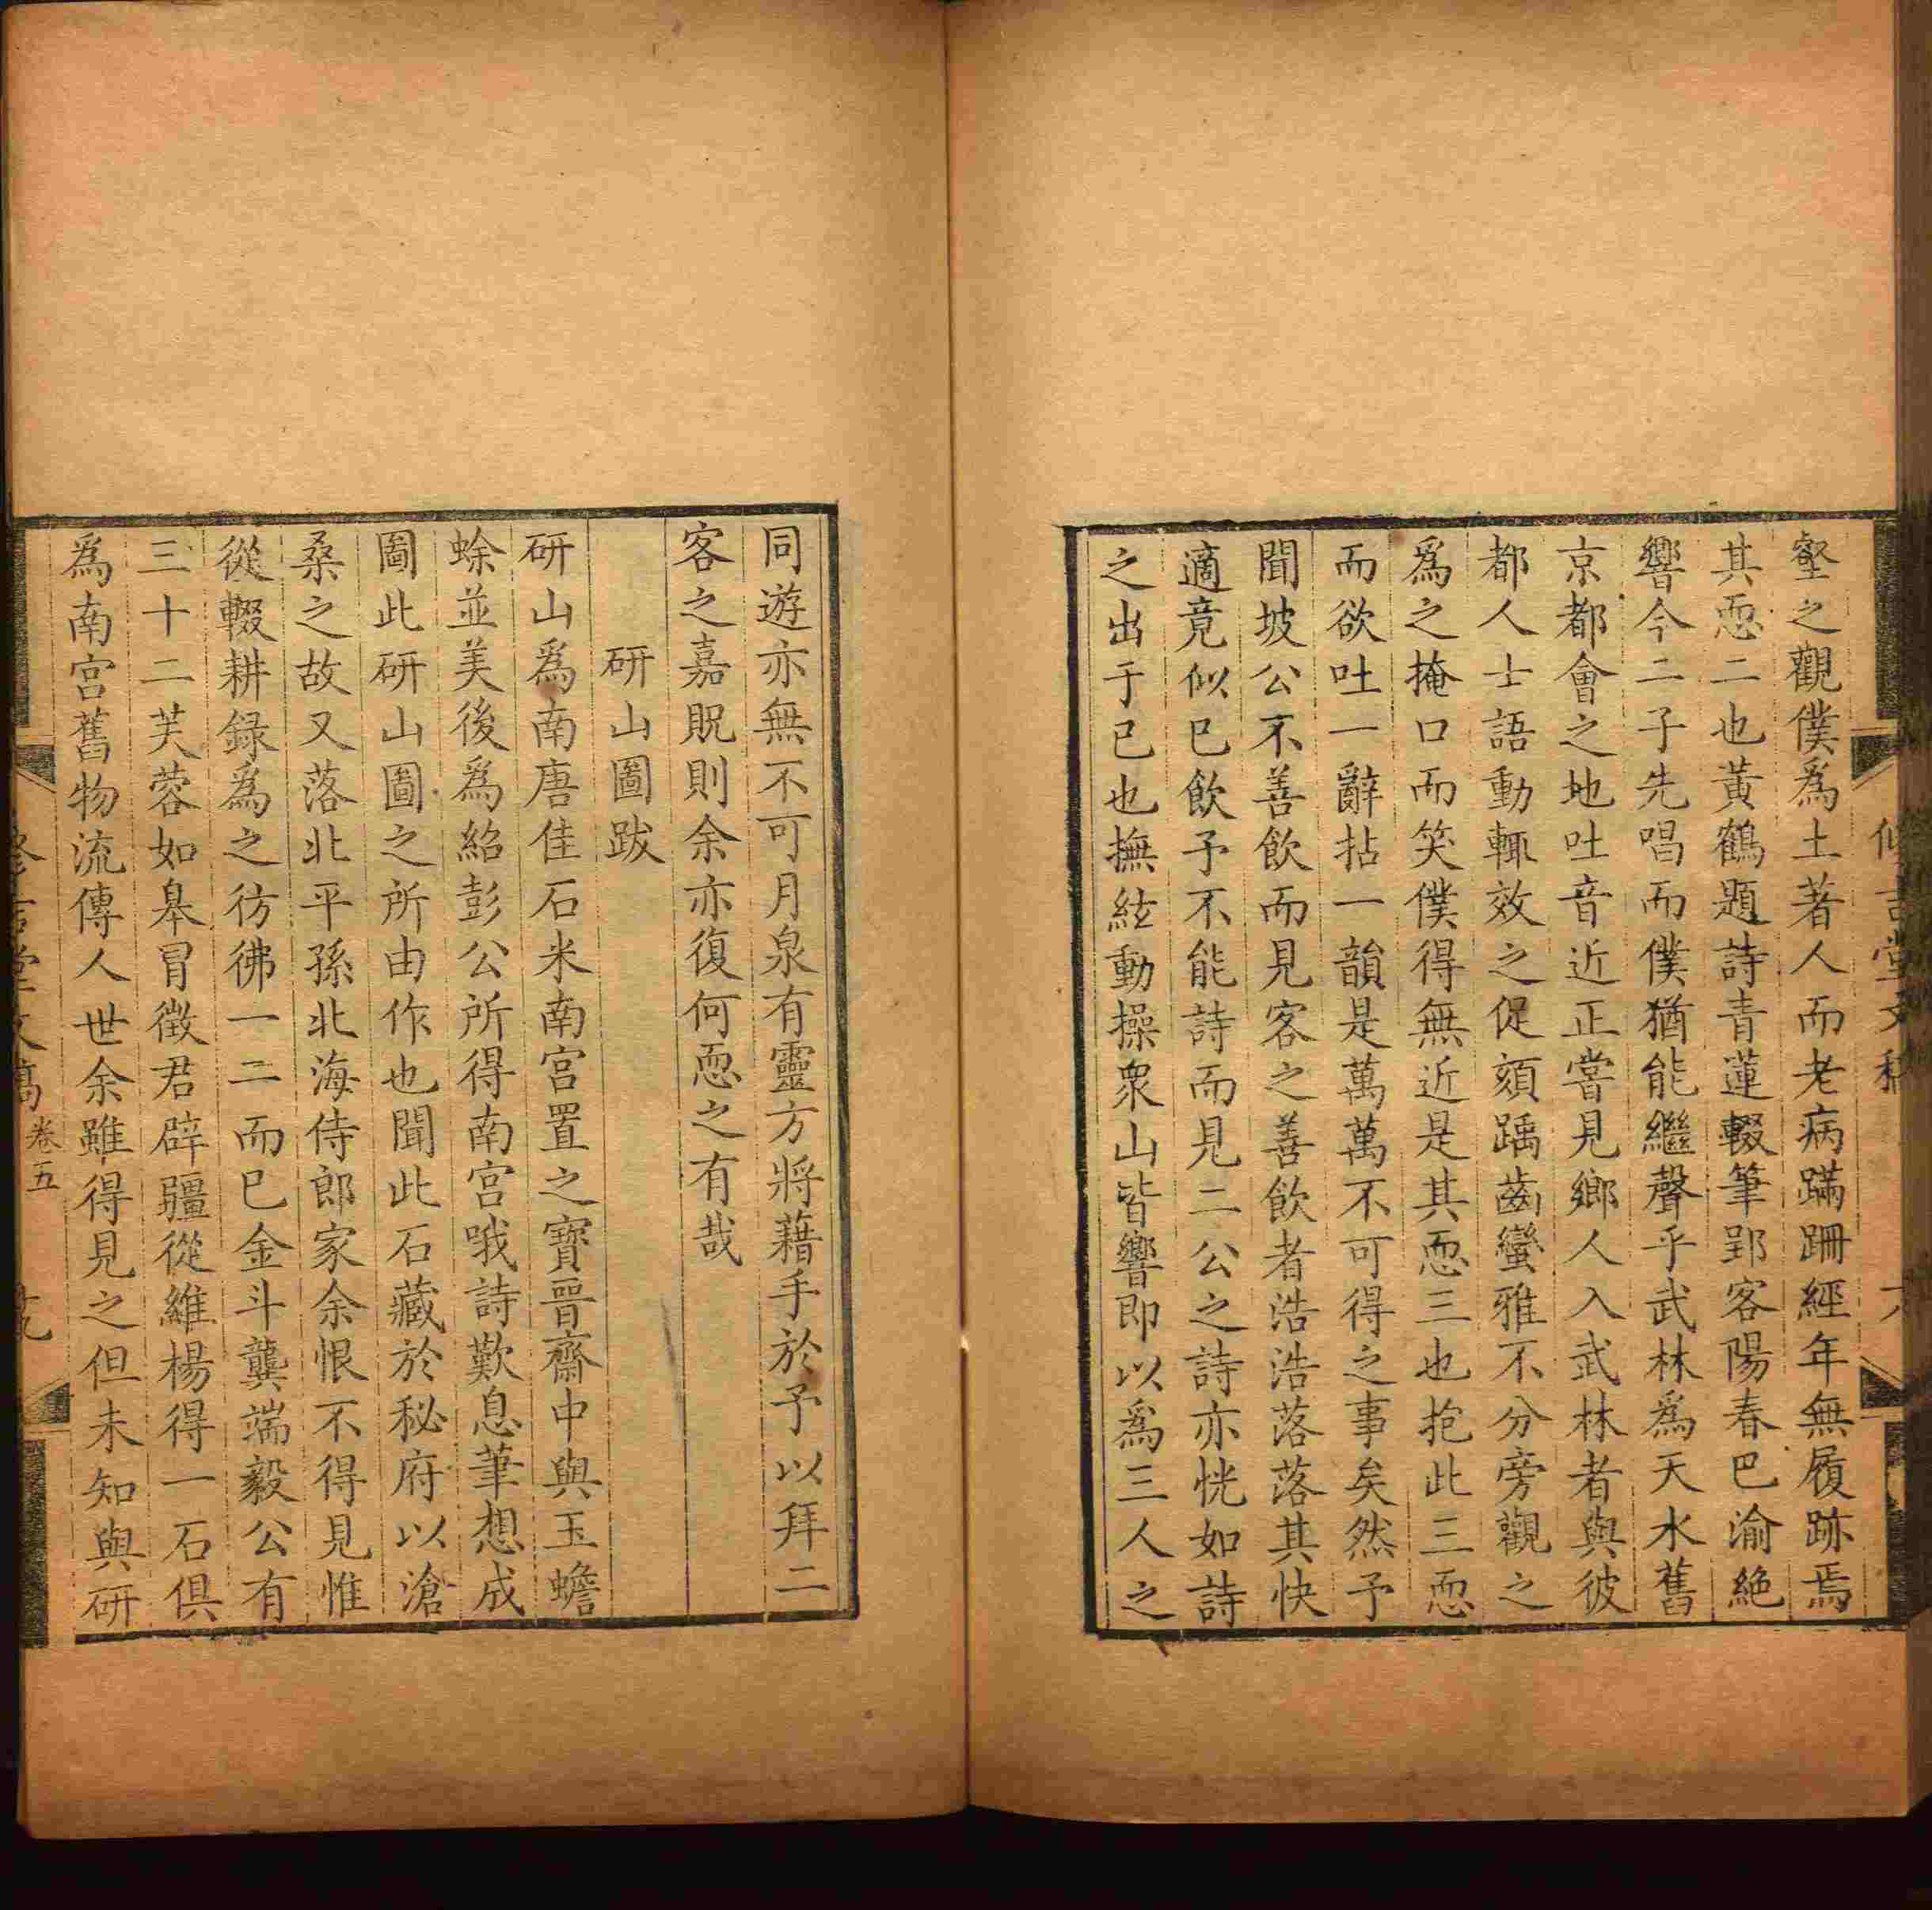 壑之觀僕爲土著人而老病蹣跚經年無履跡焉
其恧二也黃鶴題詩青蓮輟筆郢客陽春巴渝絶
響今二子先唱而僕猶能繼聲乎武林爲天水舊
京都會之地吐音近正嘗見鄉人入武林者與彼
都人士語動輒效之促頞踽齒蠻雅不分旁觀之
爲之掩口而笑僕得無近是其恧三也抱此三恧
而欲吐一辭拈一韻是萬萬不可得之事矣然予
聞坡公不善飲而見客之善飲者浩浩落落其快
適竟似巳飲予不能詩而見二公之詩亦恍如詩
之出于已也撫絃動操衆山皆響即以爲三人之
同遊亦無不可月泉有靈方將藉手於予以拜二
客之嘉貺則余亦復何恧之有哉
研山圖跋
研山爲南唐佳石米南宫置之寶晉齋中與玉蟾
蜍並美後爲紿彭公所得南宫哦詩歎息筆想成
圖此研山圖之所由作也聞此石藏於秘府以滄
桑之故又落北平孫北海侍郎家余恨不得見惟
從輟耕録爲之彷彿一二而巳金斗龔端毅公有
三十二芙蓉如皋冒徵君辟疆從維楊得一石俱
爲南宫舊物流傳人世余雖得見之但未知與研
堂文稿 卷五